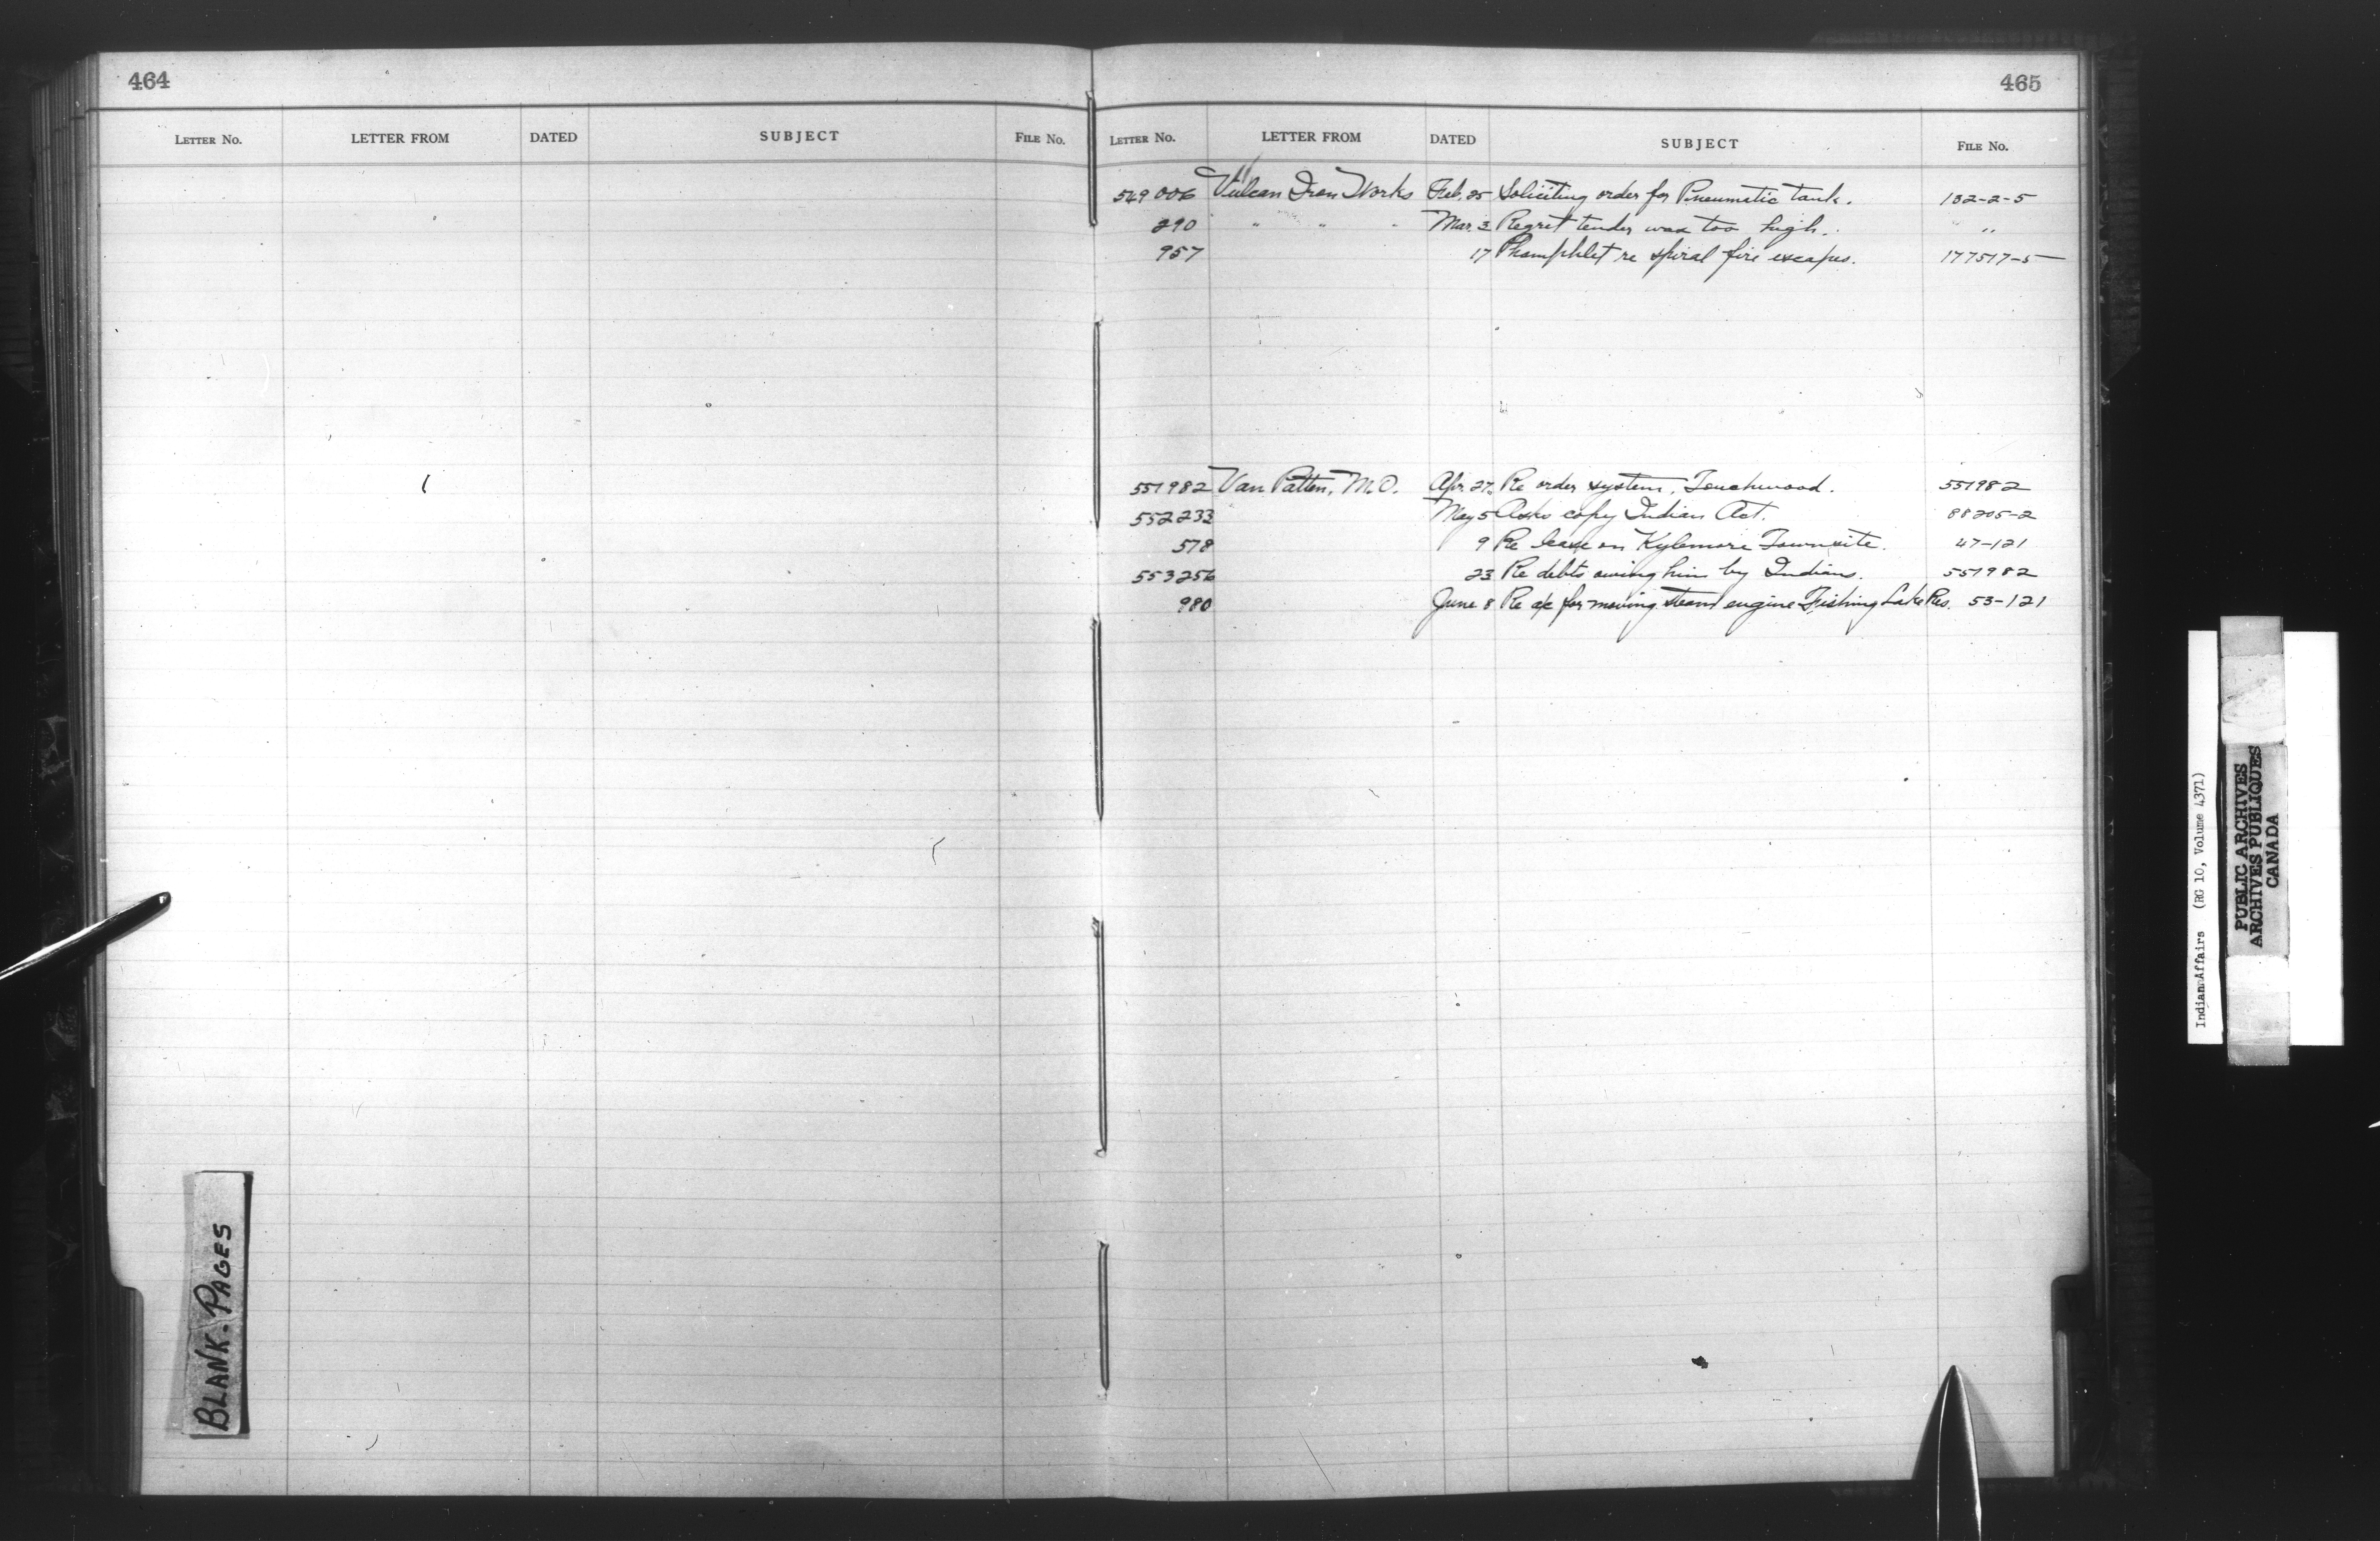 464
LETTER No. LETTER FROM DATED SUBJECT FILE No.
BLANK. PAGES
465
LETTER No. LETTER FROM DATED SUBJECT FILE No.
549006 Vulcan Iron Works Feb. 25 Soliciting order for Pneumatic tank. 132-2-5
290 " " " Mar. 3 Regret tender was too high. "
957 17 Phamphlet re spiral fire escapes. 177517-5
551982 Van Patten, M.O. Apr. 27. Re order system, Touchwood. 551982
552233 May 5 Asks copy Indian Act. 88205-2
578 9 Re lease on Kylemore Townsite. 47-121
553256 23 Re debts owing him by Indians. 551982
980 June 8 Re a/c for moving steam engine Fishing Lake Res. 53-121
Indian Affairs (RG 10, Volume 4371)
PUBLIC ARCHIVES
ARCHIVES PUBLIQUES
CANADA